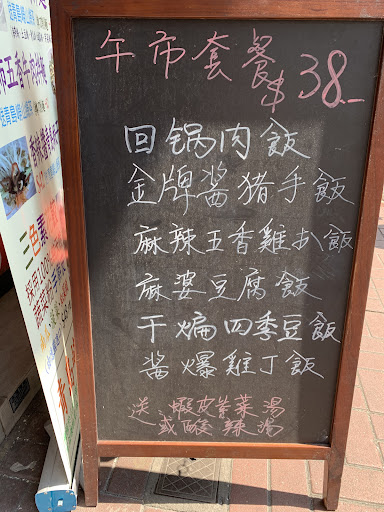 午市套餐 $38.-
回锅肉飯
金牌酱猪手飯
麻辣五香雞扒飯
麻婆豆腐飯
干煸四季豆飯
酱爆雞丁飯
送 蝦皮紫菜湯
或酸辣湯
三色素